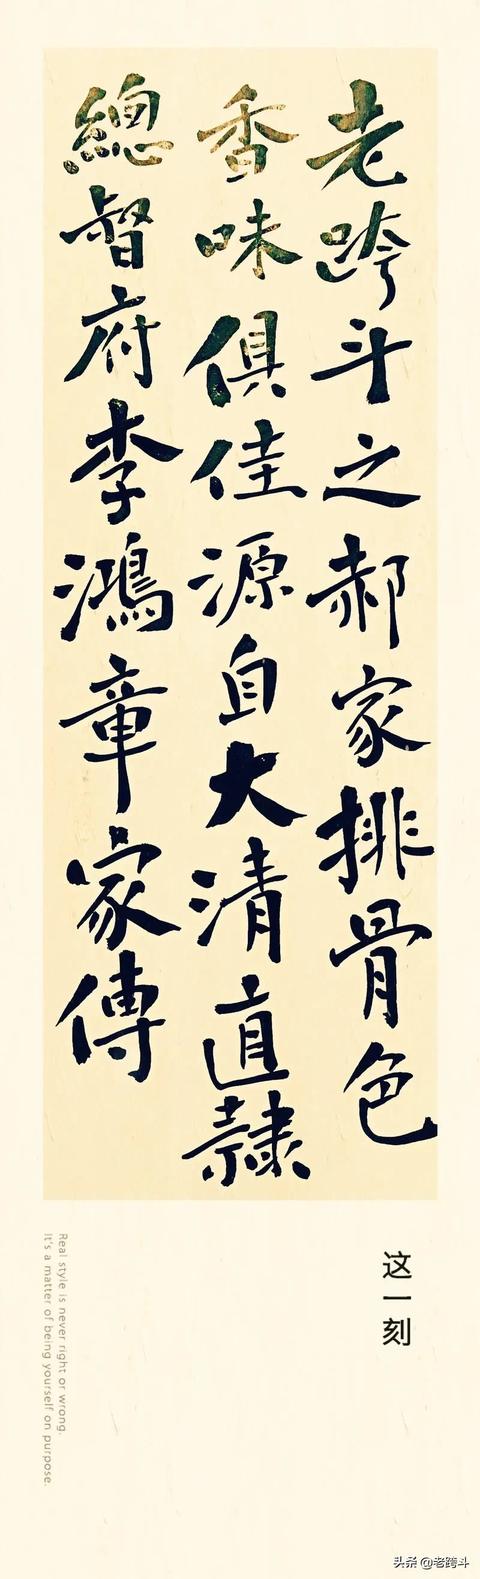 老跨斗之郝家排骨色
香味俱佳源自大清直隸
總督府李鴻章家傳
这一刻
Real style is never right or wrong.
It's a matter of being yourself on purpose.
头条 @老跨斗